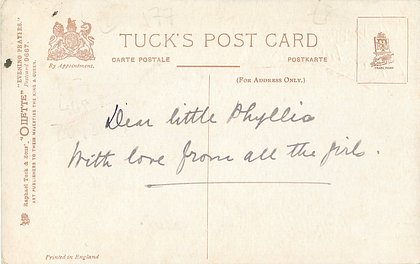 TUCK'S POST CARD
CARTE POSTALE
POSTKARTE
(FOR ADDRESS ONLY.)
By Appointment.
Raphael Tuck & Sons' "OILETTE" "EVENING PRAYERS."
Postcard 9667.
ART PUBLISHERS TO THEIR MAJESTIES THE KING & QUEEN.
Dear little Phyllis
With love from all the girls.
Printed in England